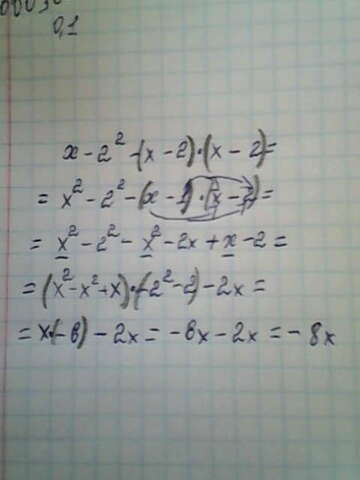 0,1
x - 2² - (x - 2)·(x - 2) =
= x² - 2² - (x - 1)·(x - 2) =
= x² - 2² - x² - 2x + x - 2 =
= (x² - x² + x)·(-2² - 2) - 2x =
= x·(-6) - 2x = -6x - 2x = -8x